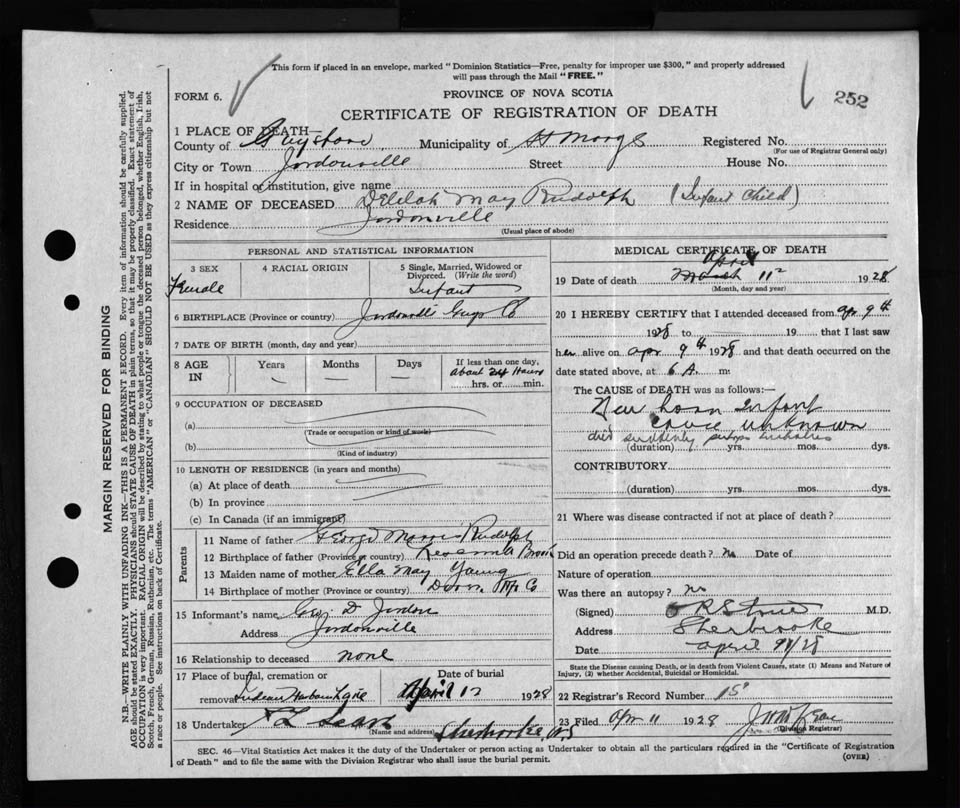 This form if placed in an envelope, marked "Dominion Statistics—Free, penalty for improper use $300," and properly addressed
will pass through the Mail "FREE."
FORM 6.
PROVINCE OF NOVA SCOTIA
252
CERTIFICATE OF REGISTRATION OF DEATH
1 PLACE OF DEATH—
County of Guysboro Municipality of St Marys Registered No.
(For use of Registrar General only)
City or Town Jordonville Street House No.
If in hospital or institution, give name
2 NAME OF DECEASED Delilah May Rudolph (Infant Child)
Residence Jordonville
(Usual place of abode)
PERSONAL AND STATISTICAL INFORMATION
3 SEX 4 RACIAL ORIGIN 5 Single, Married, Widowed or
Divorced. (Write the word)
Female Infant
6 BIRTHPLACE (Province or country) Jordonville Guys Co
7 DATE OF BIRTH (month, day and year)
8 AGE IN Years Months Days If less than one day,
about 24 Hours
hrs. or min.
9 OCCUPATION OF DECEASED
(a)
(Trade or occupation or kind of work)
(b)
(Kind of industry)
10 LENGTH OF RESIDENCE (in years and months)
(a) At place of death
(b) In province
(c) In Canada (if an immigrant)
Parents
11 Name of father George Morris Rudolph
12 Birthplace of father (Province or country)
13 Maiden name of mother Ella May Young
14 Birthplace of mother (Province or country) Co
15 Informant's name D Jordon
Address Jordonville
16 Relationship to deceased none
17 Place of burial, cremation or Date of burial
removal Indian Harbour Lake April 12 1928
18 Undertaker
(Name and address) Sherbrooke, N.S
MEDICAL CERTIFICATE OF DEATH
April
19 Date of death March 11 1928
(Month, day and year)
20 I HEREBY CERTIFY that I attended deceased from Apr 9th
1928 to 19 that I last saw
her alive on apr 9th 1928 and that death occurred on the
date stated above, at 6 A. m.
The CAUSE of DEATH was as follows:—
New born infant
cause unknown
died suddenly
(duration) yrs. mos. dys.
CONTRIBUTORY
(duration) yrs. mos. dys.
21 Where was disease contracted if not at place of death?
Did an operation precede death? no Date of
Nature of operation
Was there an autopsy? no
(Signed) M.D.
Address Sherbrooke
Date april 28
State the Disease causing Death, or in death from Violent Causes, state (1) Means and Nature of
Injury, (2) whether Accidental, Suicidal or Homicidal.
22 Registrar's Record Number 15
23 Filed Apr 11 1928
(Division Registrar)
SEC. 46—Vital Statistics Act makes it the duty of the Undertaker or person acting as Undertaker to obtain all the particulars required in the "Certificate of Registration
of Death" and to file the same with the Division Registrar who shall issue the burial permit.
(OVER)
MARGIN RESERVED FOR BINDING
N.B.—WRITE PLAINLY WITH UNFADING INK—THIS IS A PERMANENT RECORD. Every item of information should be carefully supplied.
AGE should be stated EXACTLY. PHYSICIANS should STATE CAUSE OF DEATH in plain terms, so that it may be properly classified. Exact statement of
OCCUPATION is very important. RACIAL ORIGIN will be described by stating to what people or tongue the deceased person belonged, whether English, Irish,
Scotch, French, German, Russian, Ruthenian, etc. The terms "AMERICAN" or "CANADIAN" SHOULD NOT BE USED as they express citizenship but not
a race or people. See instructions on back of Certificate.